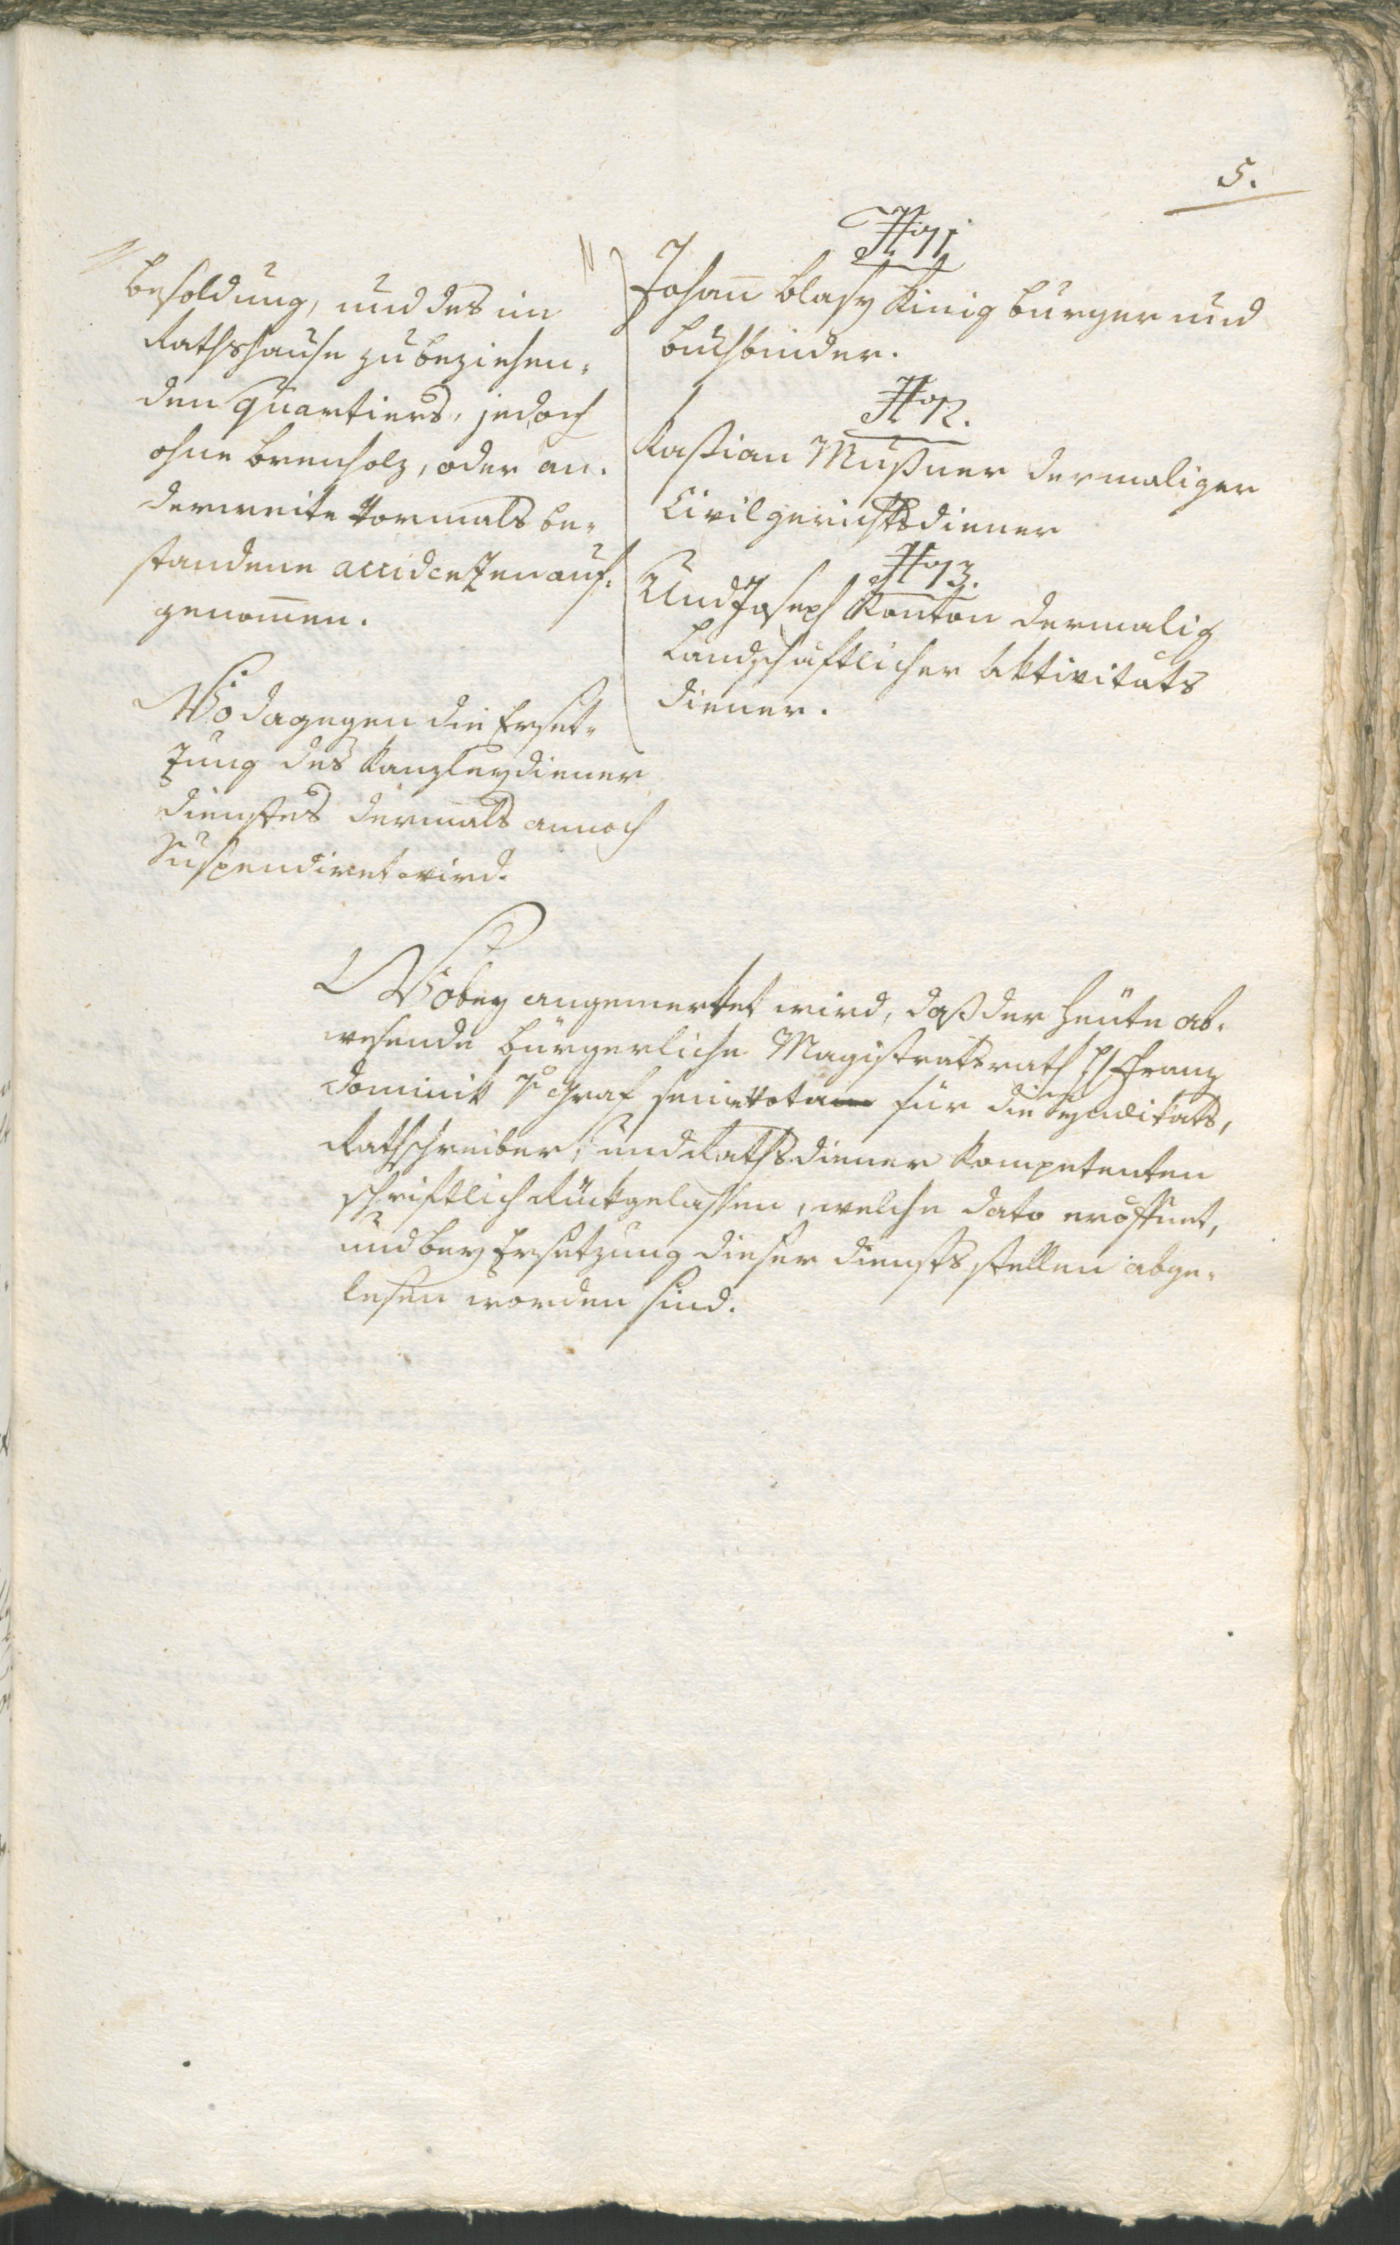 5.
Besoldung, und des im
Rathshause zu beziehen-
den Quartiers, jedoch
ohne Brenholz, oder an-
derweite vormals be-
standene accidenzen auf-
genom̅en.
Wo dagegen die Erset-
zung des Kanzleydiener
dienstes dermals annoch
Suspendiret wird.
No 11
Johan̅ Blasy König Burger und
Buchbinder.
No 12.
Kassian Mußner dermaliger
Civilgerichtsdiener
No 13.
Und Joseph Kanton dermalig
Landschäftlicher Aktivitäts
diener.
Wobey angemerket wird, daß der heute ab-
wesende bürgerliche Magistratsrath H Franz
Dominik v Graf seine vota für die Syndikats,
Rathschreiber, und Rathsdiener Kompetenten
schriftlich Rückgelassen, welche dato eröffnet,
und bey Ersetzung dieser dienststellen abge-
lesen worden sind.